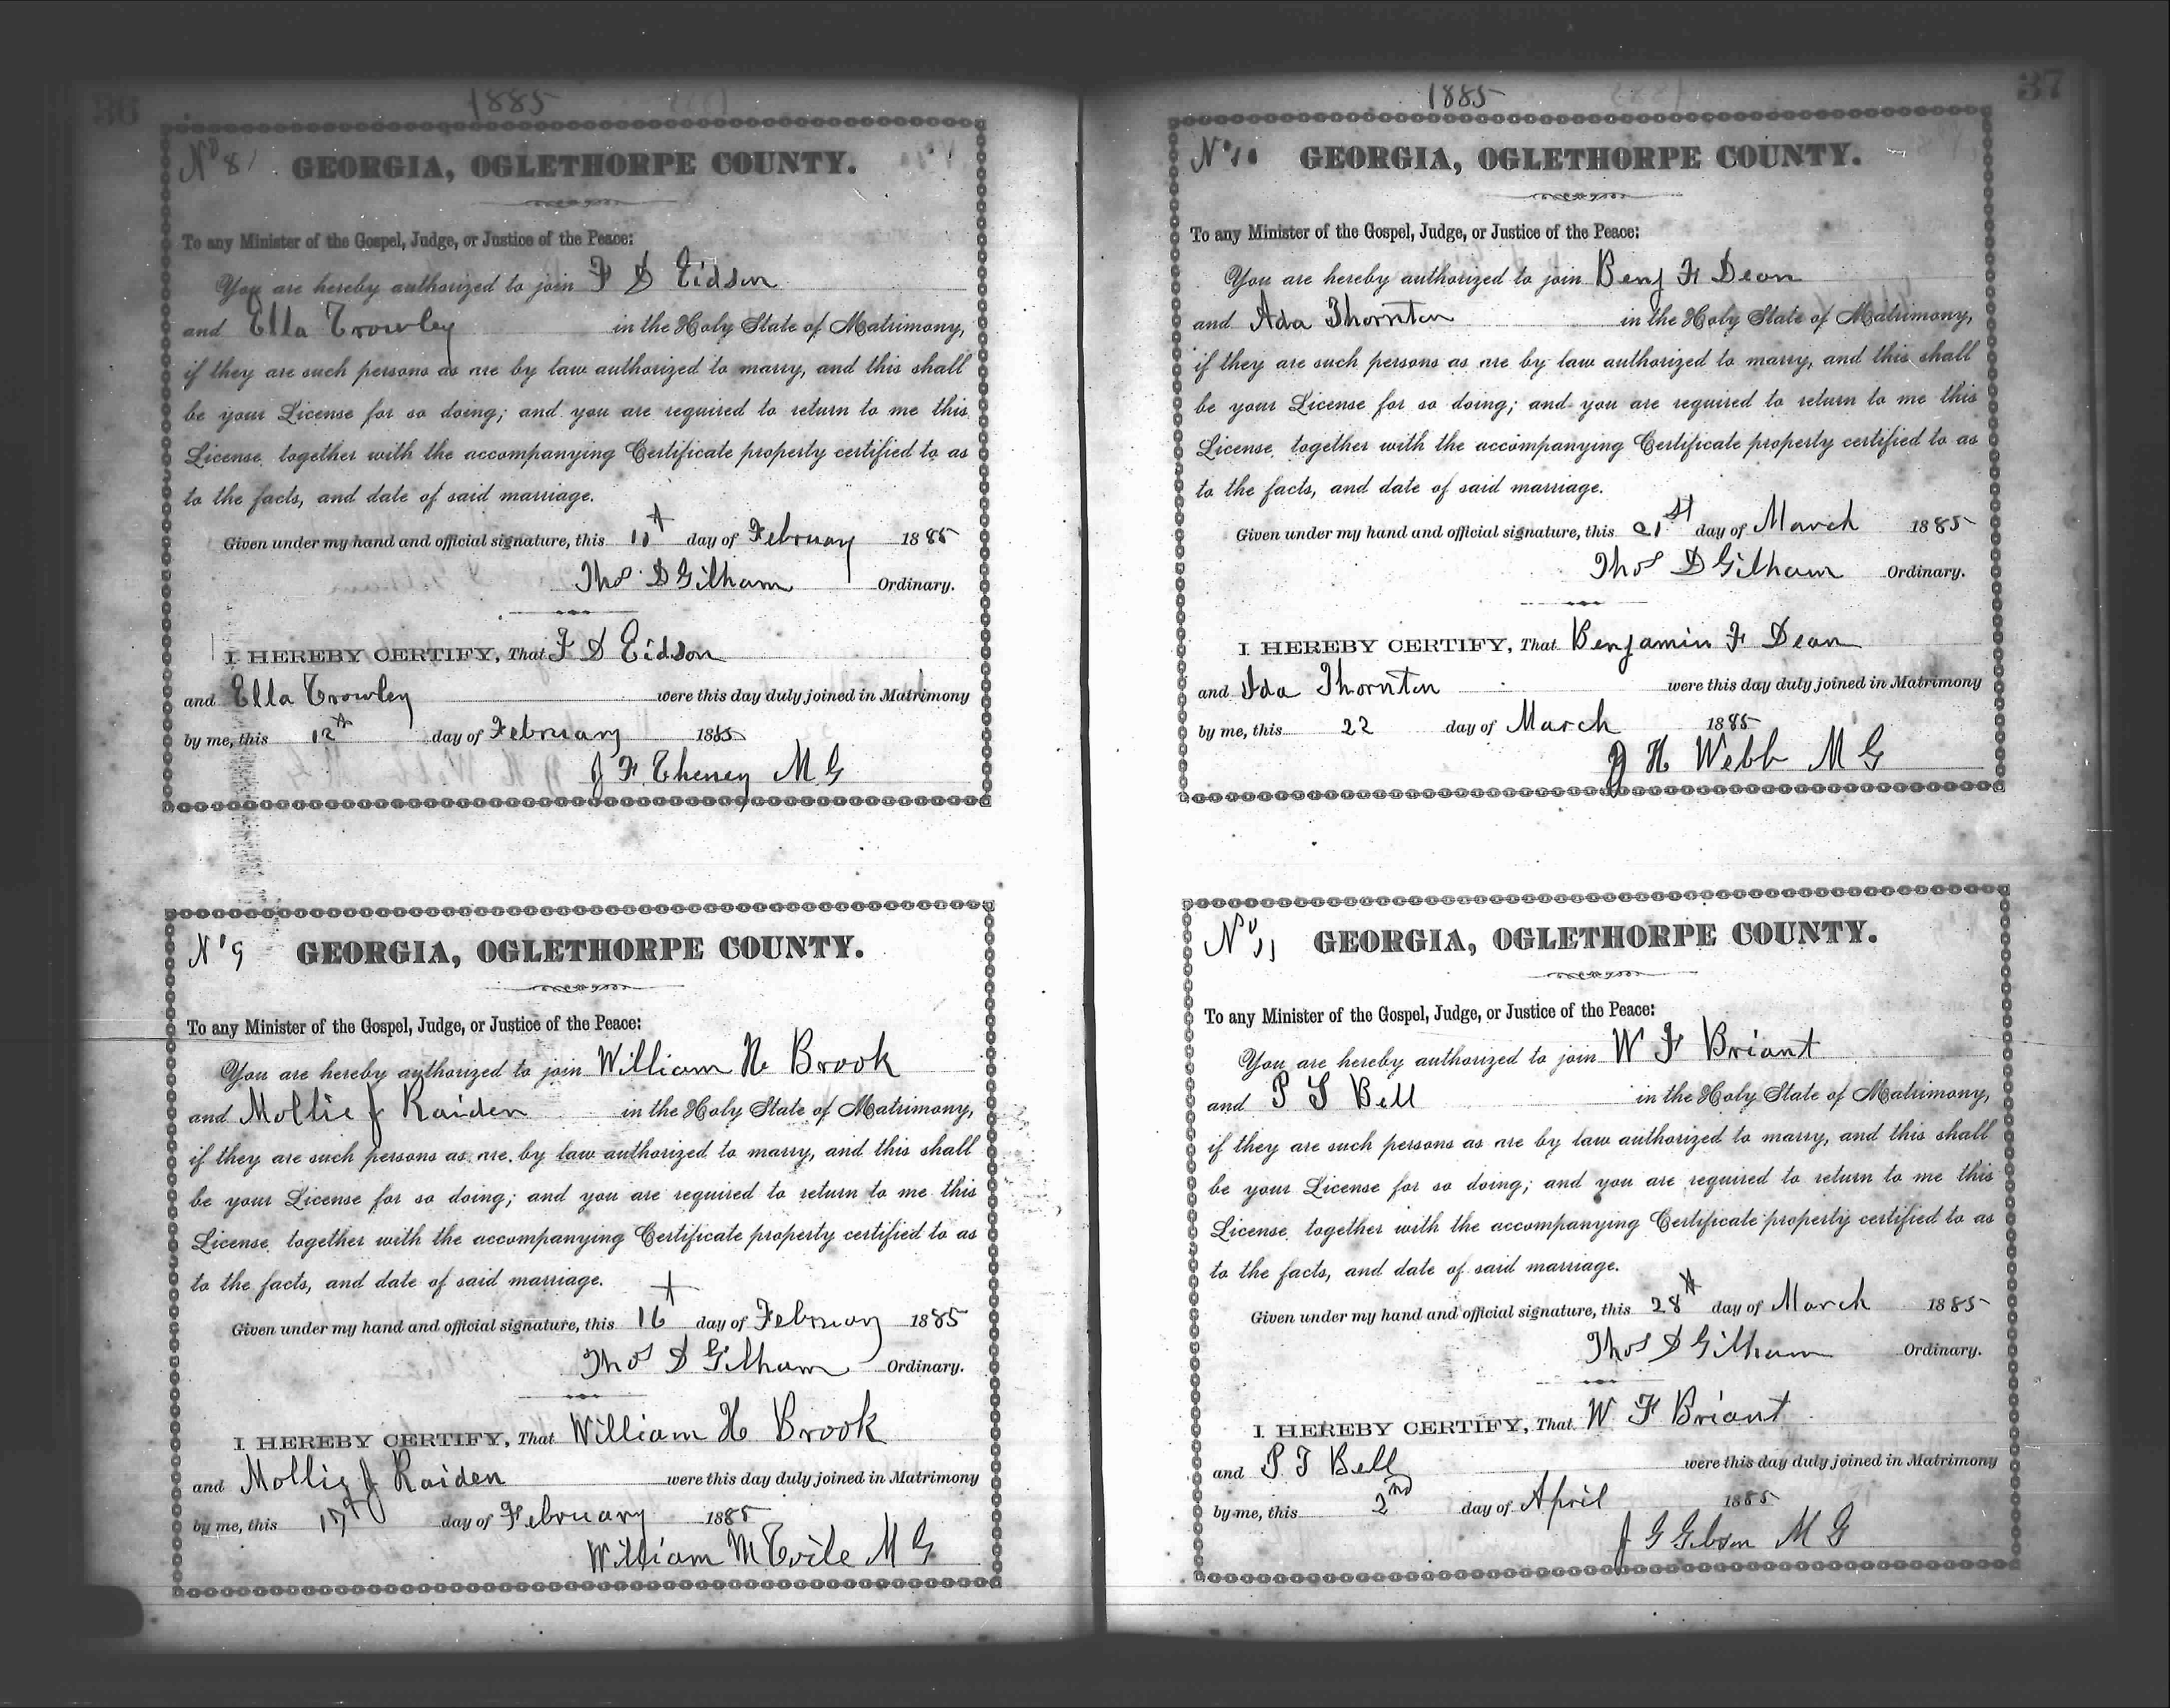 36
1885
No 8
GEORGIA, OGLETHORPE COUNTY.
To any Minister of the Gospel, Judge, or Justice of the Peace:
You are hereby authorized to join F D Eidson
and Ella Crowley in the Holy State of Matrimony,
if they are such persons as are by law authorized to marry, and this shall
be your License for so doing; and you are required to return to me this
License, together with the accompanying Certificate property certified to as
to the facts, and date of said marriage.
Given under my hand and official signature, this day of February 1885
Thos D Gilham Ordinary.
I HEREBY CERTIFY, That F D Eidson
and Ella Crowley were this day duly joined in Matrimony
by me, this 12th day of February 1885
J F Cheney M G
No 9
GEORGIA, OGLETHORPE COUNTY.
To any Minister of the Gospel, Judge, or Justice of the Peace:
You are hereby authorized to join William H Brook
and Mollie J Raiden in the Holy State of Matrimony,
if they are such persons as are by law authorized to marry, and this shall
be your License for so doing; and you are required to return to me this
License, together with the accompanying Certificate property certified to as
to the facts, and date of said marriage.
Given under my hand and official signature, this 16th day of February 1885
Thos D Gilham Ordinary.
I HEREBY CERTIFY, That William H Brook
and Mollie J Raiden were this day duly joined in Matrimony
by me, this 17th day of February 1885
William M Coile M G
37
1885
No 10
GEORGIA, OGLETHORPE COUNTY.
To any Minister of the Gospel, Judge, or Justice of the Peace:
You are hereby authorized to join Benj F Dean
and Ada Thornton in the Holy State of Matrimony,
if they are such persons as are by law authorized to marry, and this shall
be your License for so doing; and you are required to return to me this
License, together with the accompanying Certificate property certified to as
to the facts, and date of said marriage.
Given under my hand and official signature, this 21st day of March 1885
Thos D Gilham Ordinary.
I HEREBY CERTIFY, That Benjamin F Dean
and Ida Thornton were this day duly joined in Matrimony
by me, this 22 day of March 1885
J H Webb M G
No 11
GEORGIA, OGLETHORPE COUNTY.
To any Minister of the Gospel, Judge, or Justice of the Peace:
You are hereby authorized to join W F Briant
and P T Bell in the Holy State of Matrimony,
if they are such persons as are by law authorized to marry, and this shall
be your License for so doing; and you are required to return to me this
License, together with the accompanying Certificate property certified to as
to the facts, and date of said marriage.
Given under my hand and official signature, this 28th day of March 1885
Thos D Gilham Ordinary.
I HEREBY CERTIFY, That W F Briant
and P T Bell were this day duly joined in Matrimony
by me, this 2nd day of April 1885
J G Gibson M G